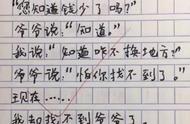 "您知道钱少了吗?"
爷爷说:"知道。"
我说:"知道咋不换地方?"
爷爷说:"怕你找不到了。"
现在……
我却找不到爷爷了。